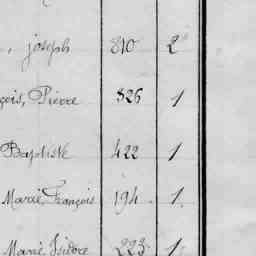 , joseph 810 2
çois, Pierre 826 1
Baptiste 422 1
Marie, François 194 1
Marie, Isidore 223 1